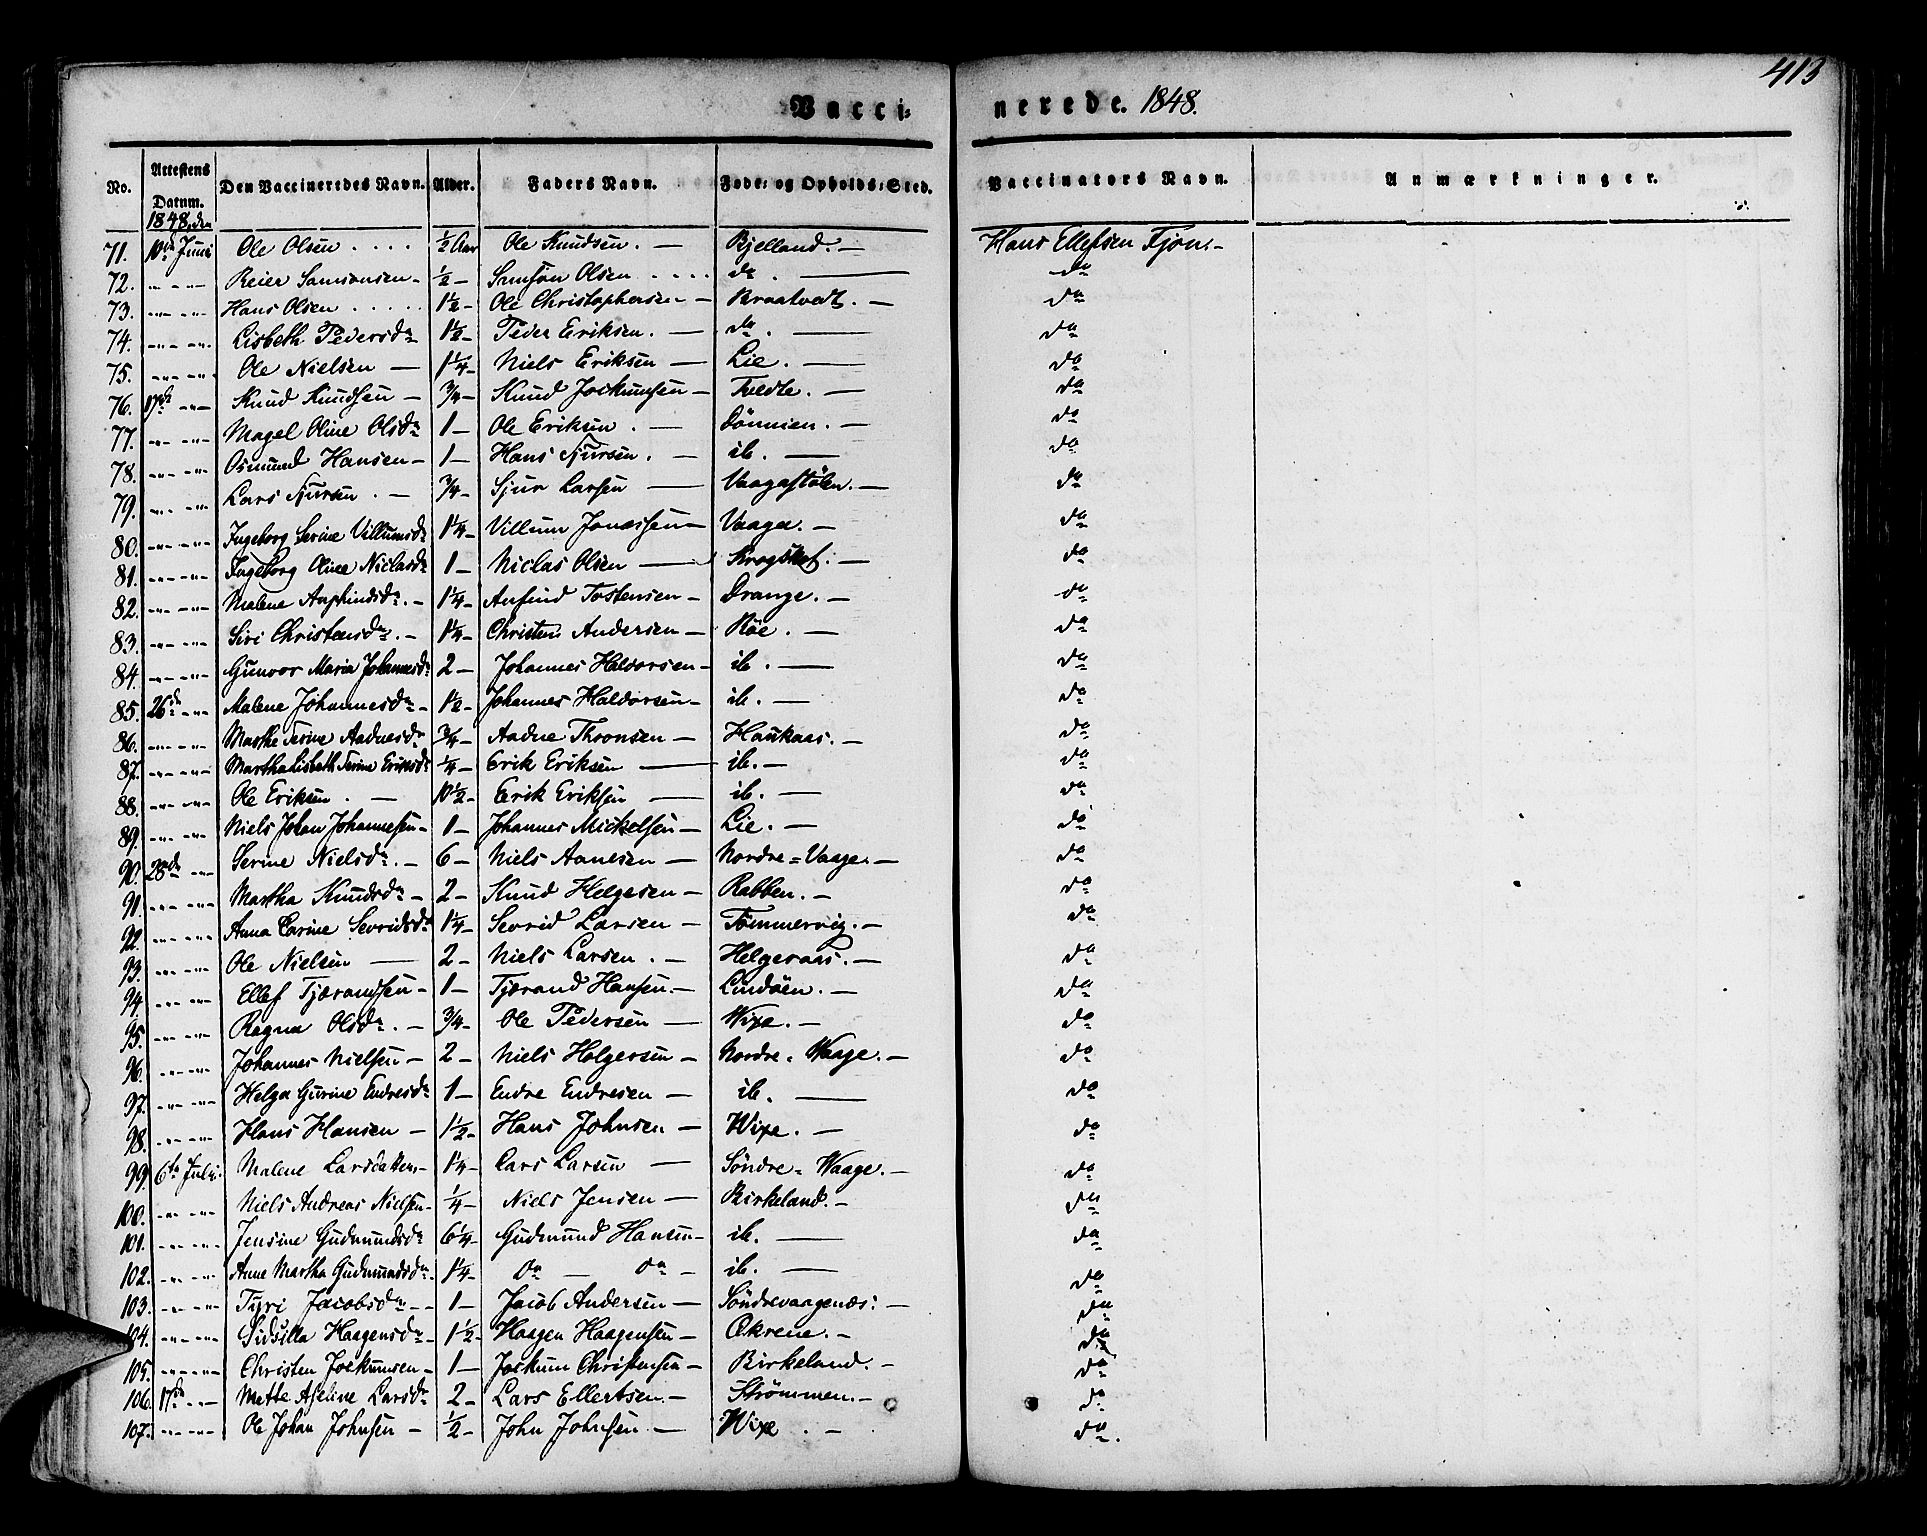 413
Vacci-nerede. 1848.
No. Attestens Datum. Den Vaccineredes Navn. Alder. Faders Navn. Føde- og Opholds-Sted. Vaccinators Navn. Anmærkninger.
1848, den
71. 10de Juni Ole Olsen . . . . ½ Aar Ole Knudsen. — Bjelland. — Hans Ellefsen Fjøn. -
72. -"- -"- Reier Samsonsen - ½ - Samson Olsen . . . . do . — do
73. -"- -"- Hans Olsen . . . . . 1½ - Ole Christophersen — Braatvedt. — do
74. -"- -"- Lisbeth Pedersdr 1½ - Peder Eriksen. — do . — do
75. -"- -"- Ole Nielsen — 1¼ - Niels Eriksen — Lie. — do
76. 17de -"- Knud Knudsen — ¾ - Knud Jockumsen — Tvedte. — do
77. -"- -"- Magel Oline Olsdr 1 — Ole Eriksen . — Dønnien. — do
78. -"- -"- Osmund Hansen — 1 — Hans Sjursen. — ib. — do
79. -"- -"- Lars Sjursen . — ¾ - Sjur Larsen — Vaagastølen. — do
80. -"- -"- Ingeborg Serine Villumsdr 1¼ - Villum Jonassen — Vaage. — do
81. -"- -"- Ingeborg Oline Niclasdr 1 — Niclas Olsen — Krogskot. — do
82. -"- -"- Malene Anphindsdr. — 1¼ - Anfind Tostensen — Drange. — do
83. -"- -"- Siri Christensdr. — 1¼ - Christen Andersen — Røe. — do
84. -"- -"- Gunvor Maria Johannesdr 2 — Johannes Haldorsen — ib. — do
85. 26de -"- Malene Johannesdr — 1½ - Johannes Haldorsen — ib. — do
86. -"- -"- Marthe Serine Aadnesdr ¾ - Aadne Thronsen — Haukaas. — do
87. -"- -"- Martha Lisbeth Serine Eriksdr ¼ - Erik Eriksen — ib. — do
88. -"- -"- Ole Eriksen . — 10½ - Erik Eriksen — ib. — do
89. -"- -"- Niels Johan Johannesen — 1 — Johannes Mickelsen — Lie. — do
90. 28de -"- Serine Nielsdr. — 6 — Niels Aanesen — Nordre = Vaage. — do
91. -"- -"- Martha Knudsdr — 2 — Knud Helgesen — Rabben. — do
92. -"- -"- Anna Carine Sevridsdr 1¼ - Sevrid Larsen — Tømmervig. — do
93. -"- -"- Ole Nielsen — 2 - Niels Larsen . — Helgeraas. — do
94. -"- -"- Ellef Tjærandsen — 1 — Tjærand Hansen. — Lindøen. — do
95. -"- -"- Ragna Olsdr. — ¾ - Ole Pedersen — Wixe. — do
96. -"- -"- Johannes Nielsen — 2 - Niels Holgersen — Nordre = Waage. — do
97. -"- -"- Helga Gurine Endresdr 1 — Endre Endresen — ib. — do
98. -"- -"- Hans Hansen — 1½ - Hans Johnsen — Wixe. — do
99. 6te Juli. Malene Larsdatter, — 1¼ - Lars Larsen — Søndre = Waage. — do
100. -"- -"- Niels Andreas Nielsen - ¼ - Niels Jensen — Birkeland. — do
101. -"- -"- Jensine Gudmundsdr 6¼ - Gudmund Hansen — ib. — do
102. -"- -"- Anne Martha Gudmundsdr. 1¼ - do — do — ib. — do
103. -"- -"- Tyri Jacobsdr — 1 — Jacob Andersen — Søndrevaagenæs: — do
104. -"- -"- Sidsilla Haagensdr 1½ - Haagen Haagensen — Økrene. — do
105. -"- -"- Christen Jockumsen — 1 — Jockum Christensen — Birkeland. — do
106. 17de -"- Mette Aseline Larsdr 2 - Lars Ellertsen. — Strømmen. — do
107. -"- -"- Ole Johan Johnsen — ½ - John Johnsen. — Wixe . — do.